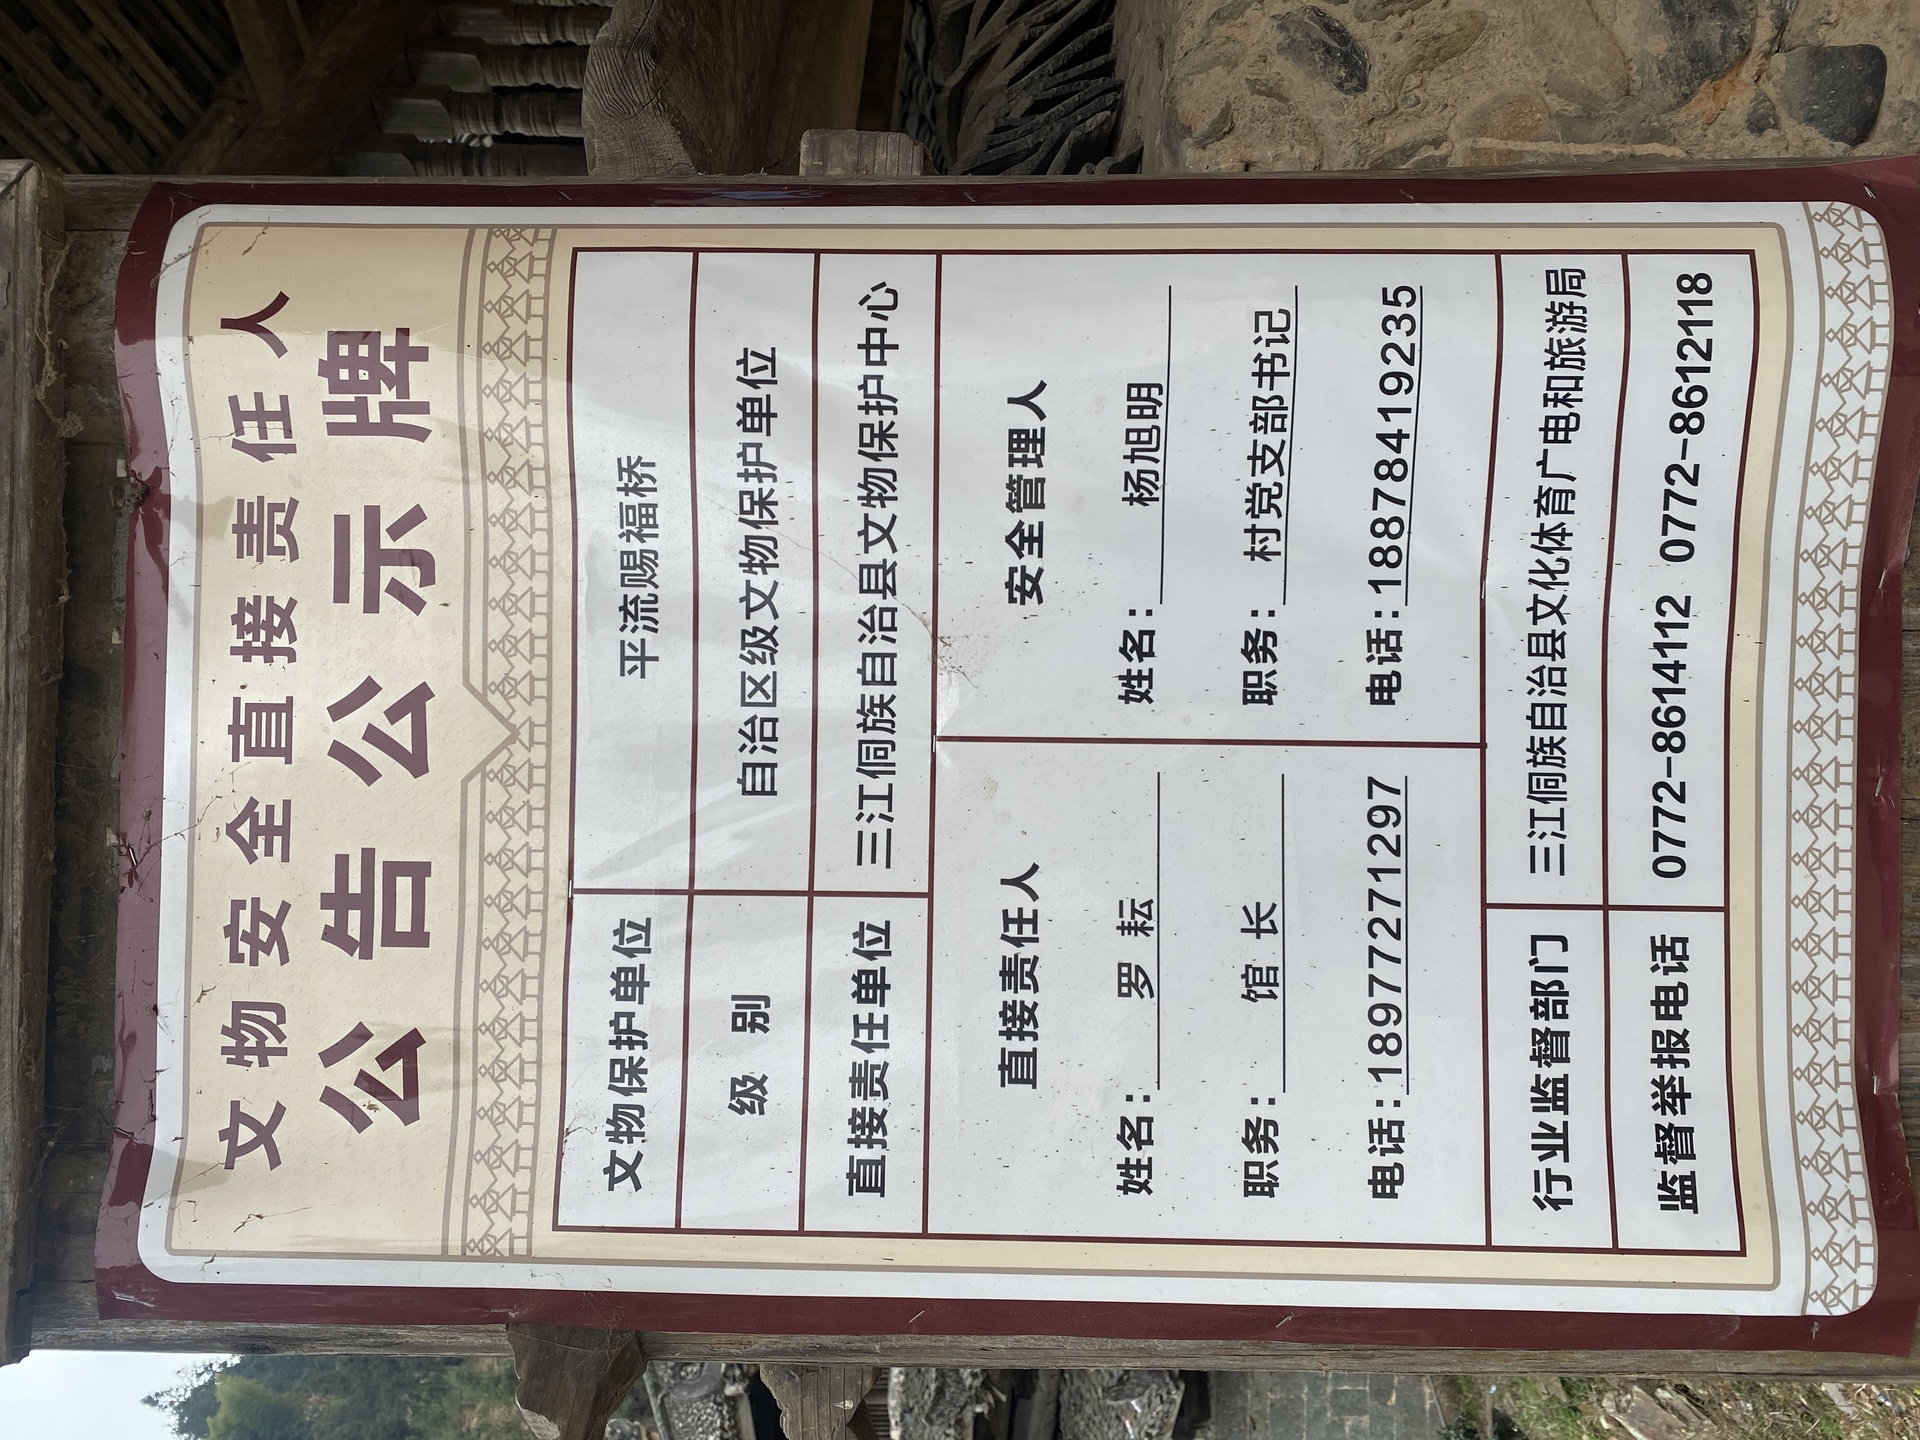 文物安全直接责任人
公告公示牌
文物保护单位 平流赐福桥
级 别 自治区级文物保护单位
直接责任单位 三江侗族自治县文物保护中心
直接责任人 安全管理人
姓名： 罗 耘 姓名： 杨旭明
职务： 馆 长 职务： 村党支部书记
电话：18977271297 电话：18878419235
行业监督部门 三江侗族自治县文化体育广电和旅游局
监督举报电话 0772-8614112 0772-8612118